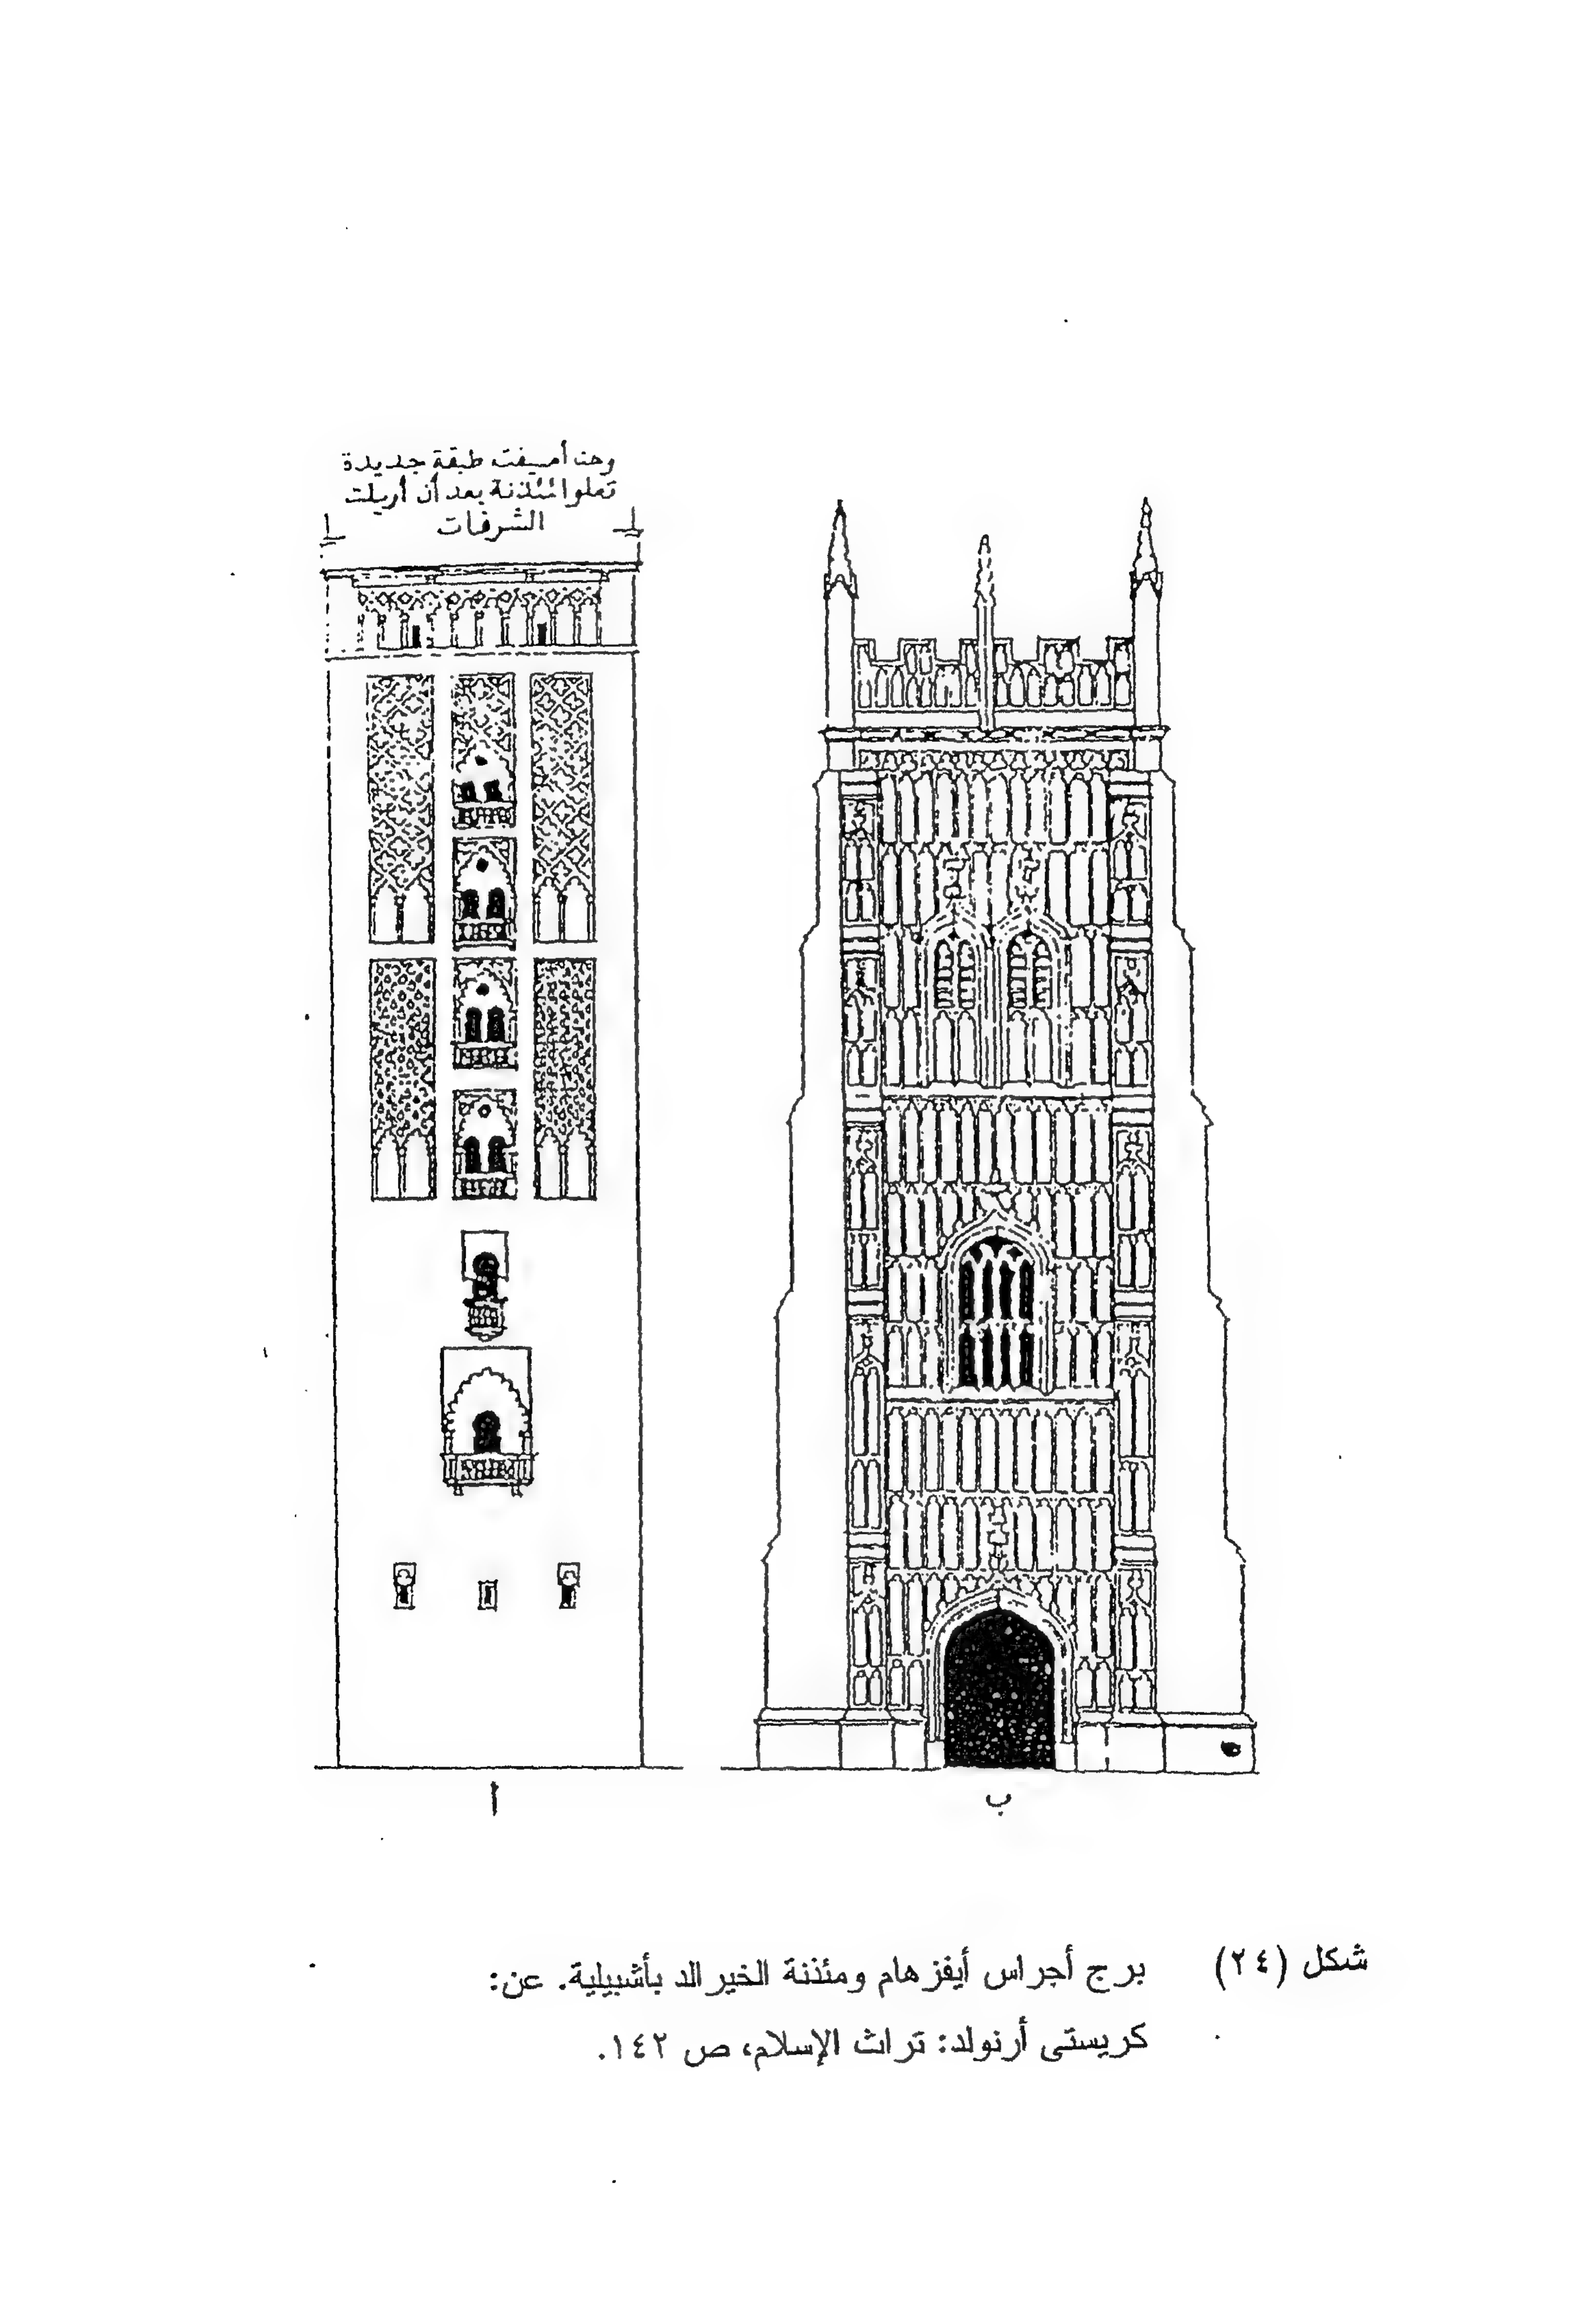 وهنا أضيفت طبقة جديدة
تعلو المئذنة بعد أن أزيلت
الشرفات
أ
ب
شكل (٢٤) برج أجراس أيفزهام ومئذنة الخيرالد بأشبيلية. عن:
كريستى أرنولد: تراث الإسلام، ص ١٤٢.